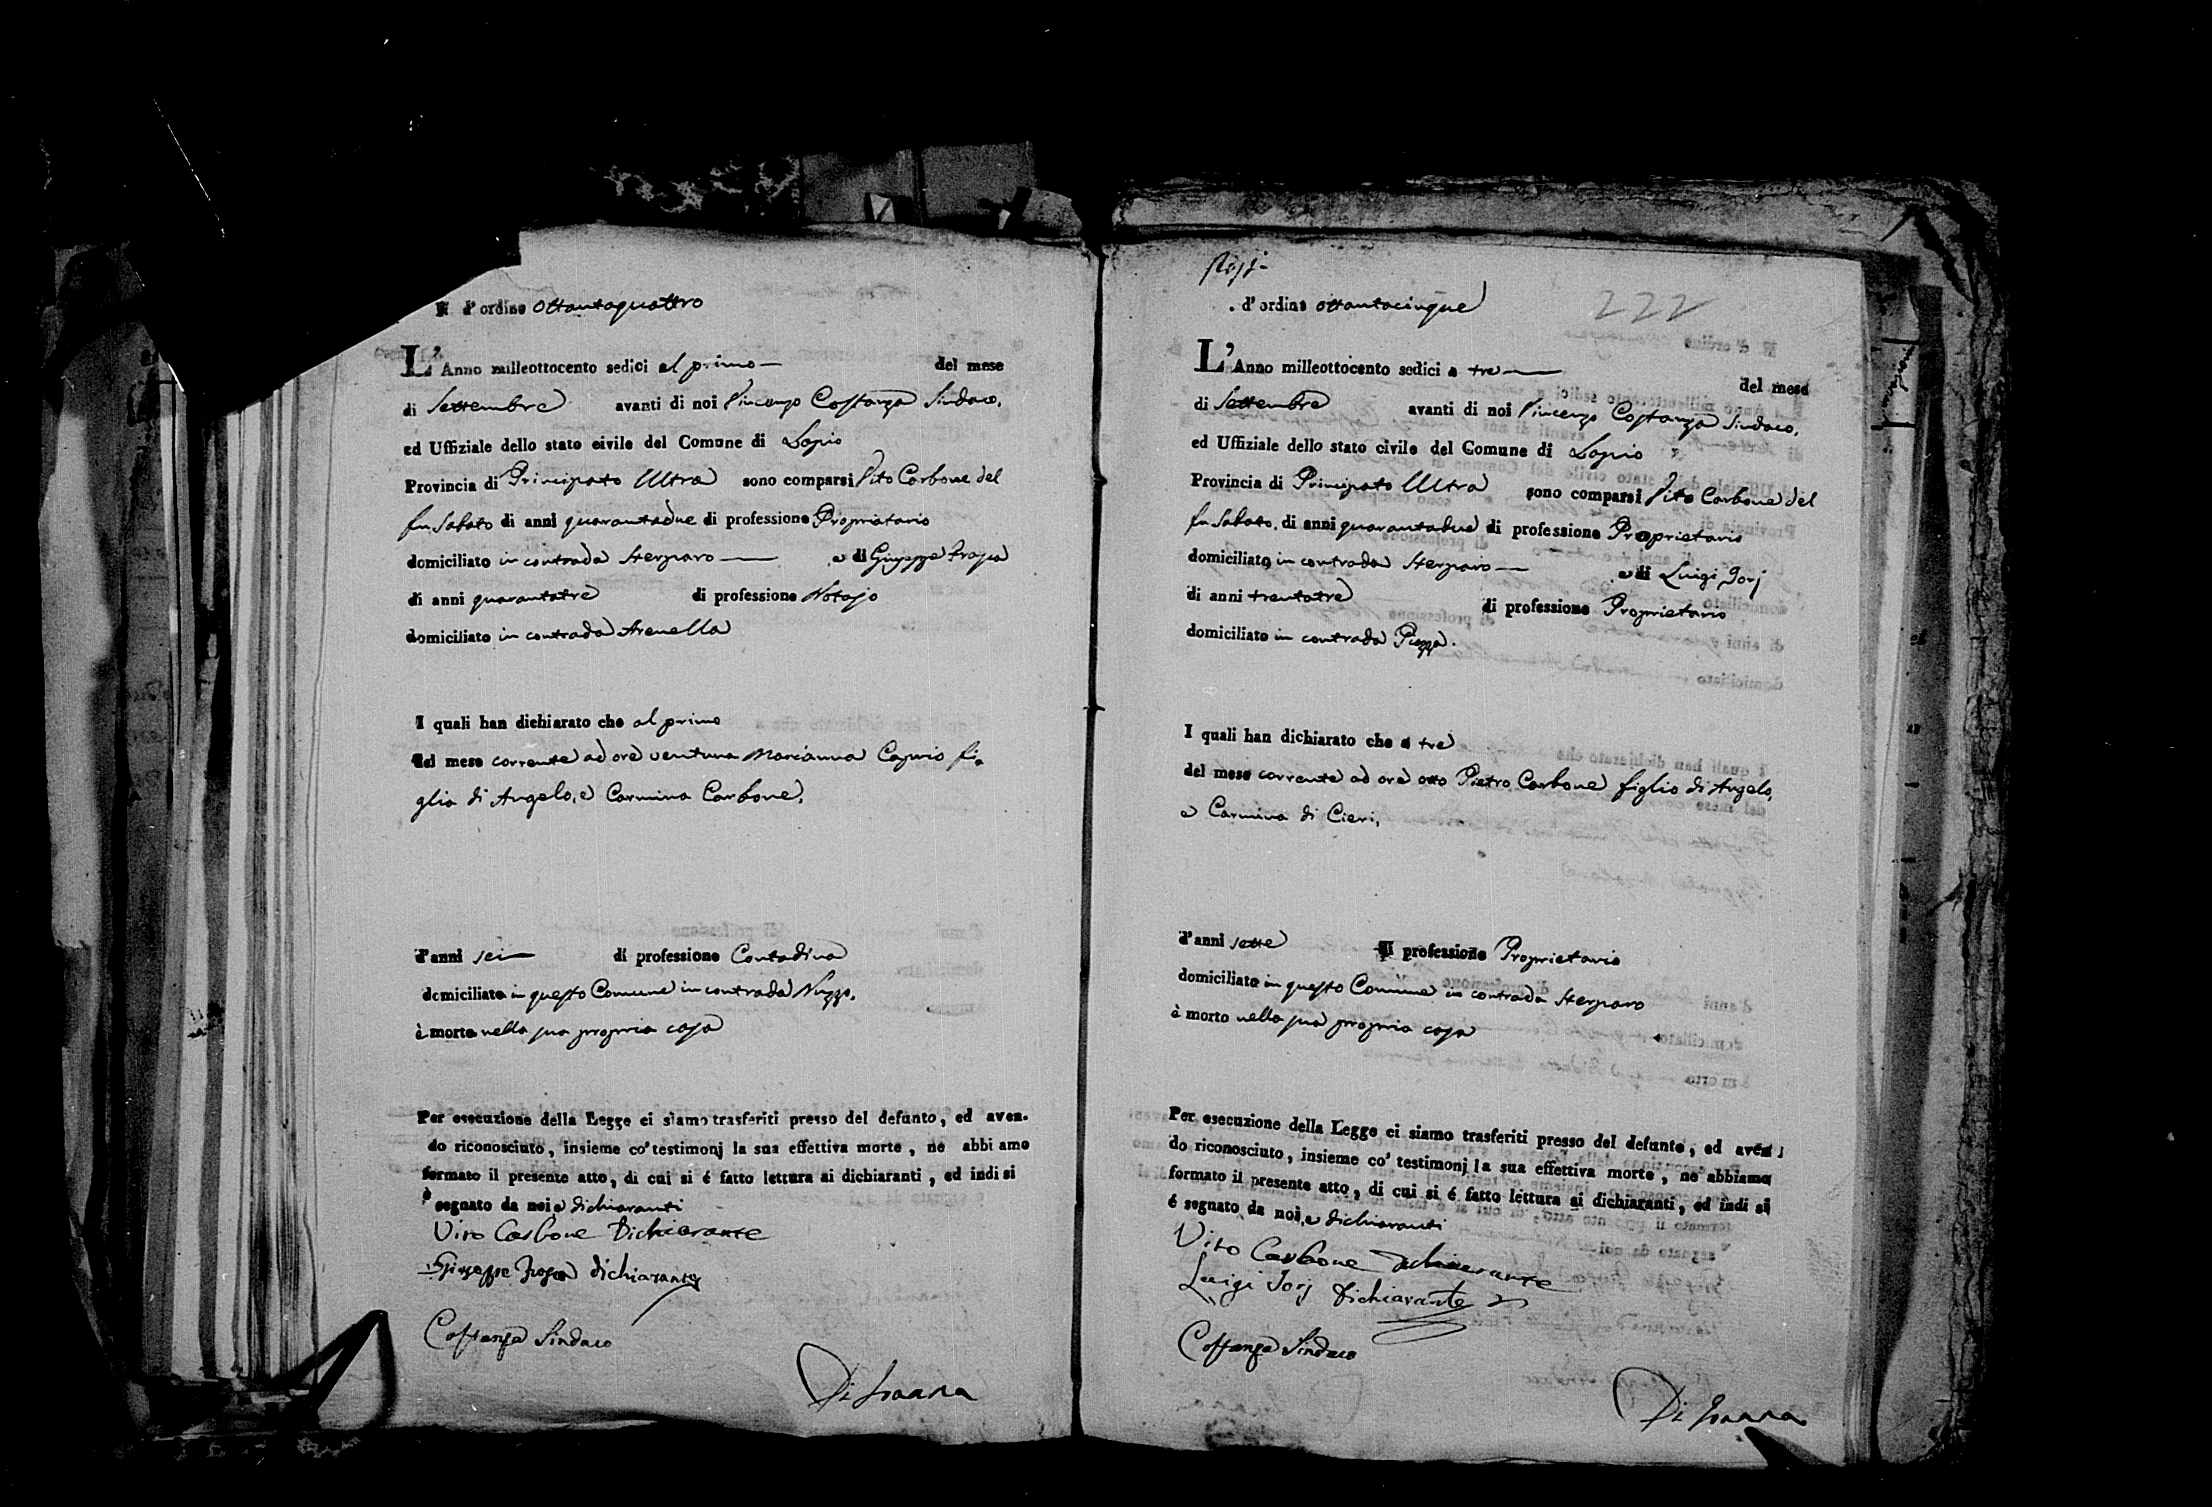 N d'ordine Ottantaquattro
L'Anno milleottocento sedici al primo — del mese
di Settembre avanti di noi Vincenzo Costanza Sindaco,
ed Uffiziale dello stato civile del Comune di Lapio
Provincia di Principato Ultra sono comparsi Vito Carbone del
fu Sabato di anni quarantadue di professione Proprietario
domiciliato in contrada Sterparo — e di Giuseppe
di anni quarantatre di professione Notajo
domiciliato in contrada Arenella
I quali han dichiarato che al primo
del mese corrente ad ore ventuna Marianna Caprio fi-
glia di Angelo, e Carmina Carbone,
d'anni sei — di professione Contadina
domiciliata in questo Comune in contrada Nuzzo,
è morta nella sua propria casa
Per esecuzione della Legge ci siamo trasferiti presso del defunto, ed aven-
do riconosciuto, insieme co' testimonj la sua effettiva morte, ne abbi amo
formato il presente atto, di cui si é fatto lettura ai dichiaranti, ed indi si
è segnato da noi e dichiaranti
Vito Carbone Dichiarante
Giuseppe dichiarante
Costanza Sindaco
. d'ordine ottantacinque
222
L'Anno milleottocento sedici a tre — del mese
di Settembre avanti di noi Vincenzo Costanza Sindaco,
ed Uffiziale dello stato civile del Comune di Lapio
Provincia di Principato Ultra sono comparsi Vito Carbone del
fu Sabato, di anni quarantadue di professione Proprietario
domiciliato in contrada Sterparo — e di Luigi Jorj
di anni trentatre di professione Proprietario
domiciliato in contrada Piazza.
I quali han dichiarato che a tre
del mese corrente ad ore otto Pietro Carbone figlio di Angelo,
e Carmina di Cieri,
d'anni sette di professione Proprietario
domiciliato in questo Comune in contrada Sterparo
è morto nella sua propria casa
Per esecuzione della Legge ci siamo trasferiti presso del defunto, ed aven
do riconosciuto, insieme co' testimonj la sua effettiva morte, ne abbiamo
formato il presente atto, di cui si é fatto lettura ai dichiaranti, ed indi si
é segnato da noi, e dichiaranti
Vito Carbone dichiarante
Luigi Jorj Dichiarante
Costanza Sindaco